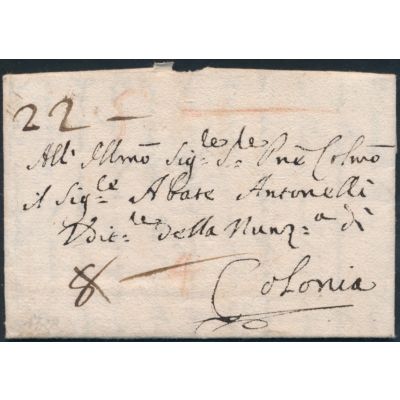 22 -
All' Illmo Sig:le S:le Pne Colmo
il Sig:le Abate Antonelli
Udit:le della Nunz:a di
8
Colonia